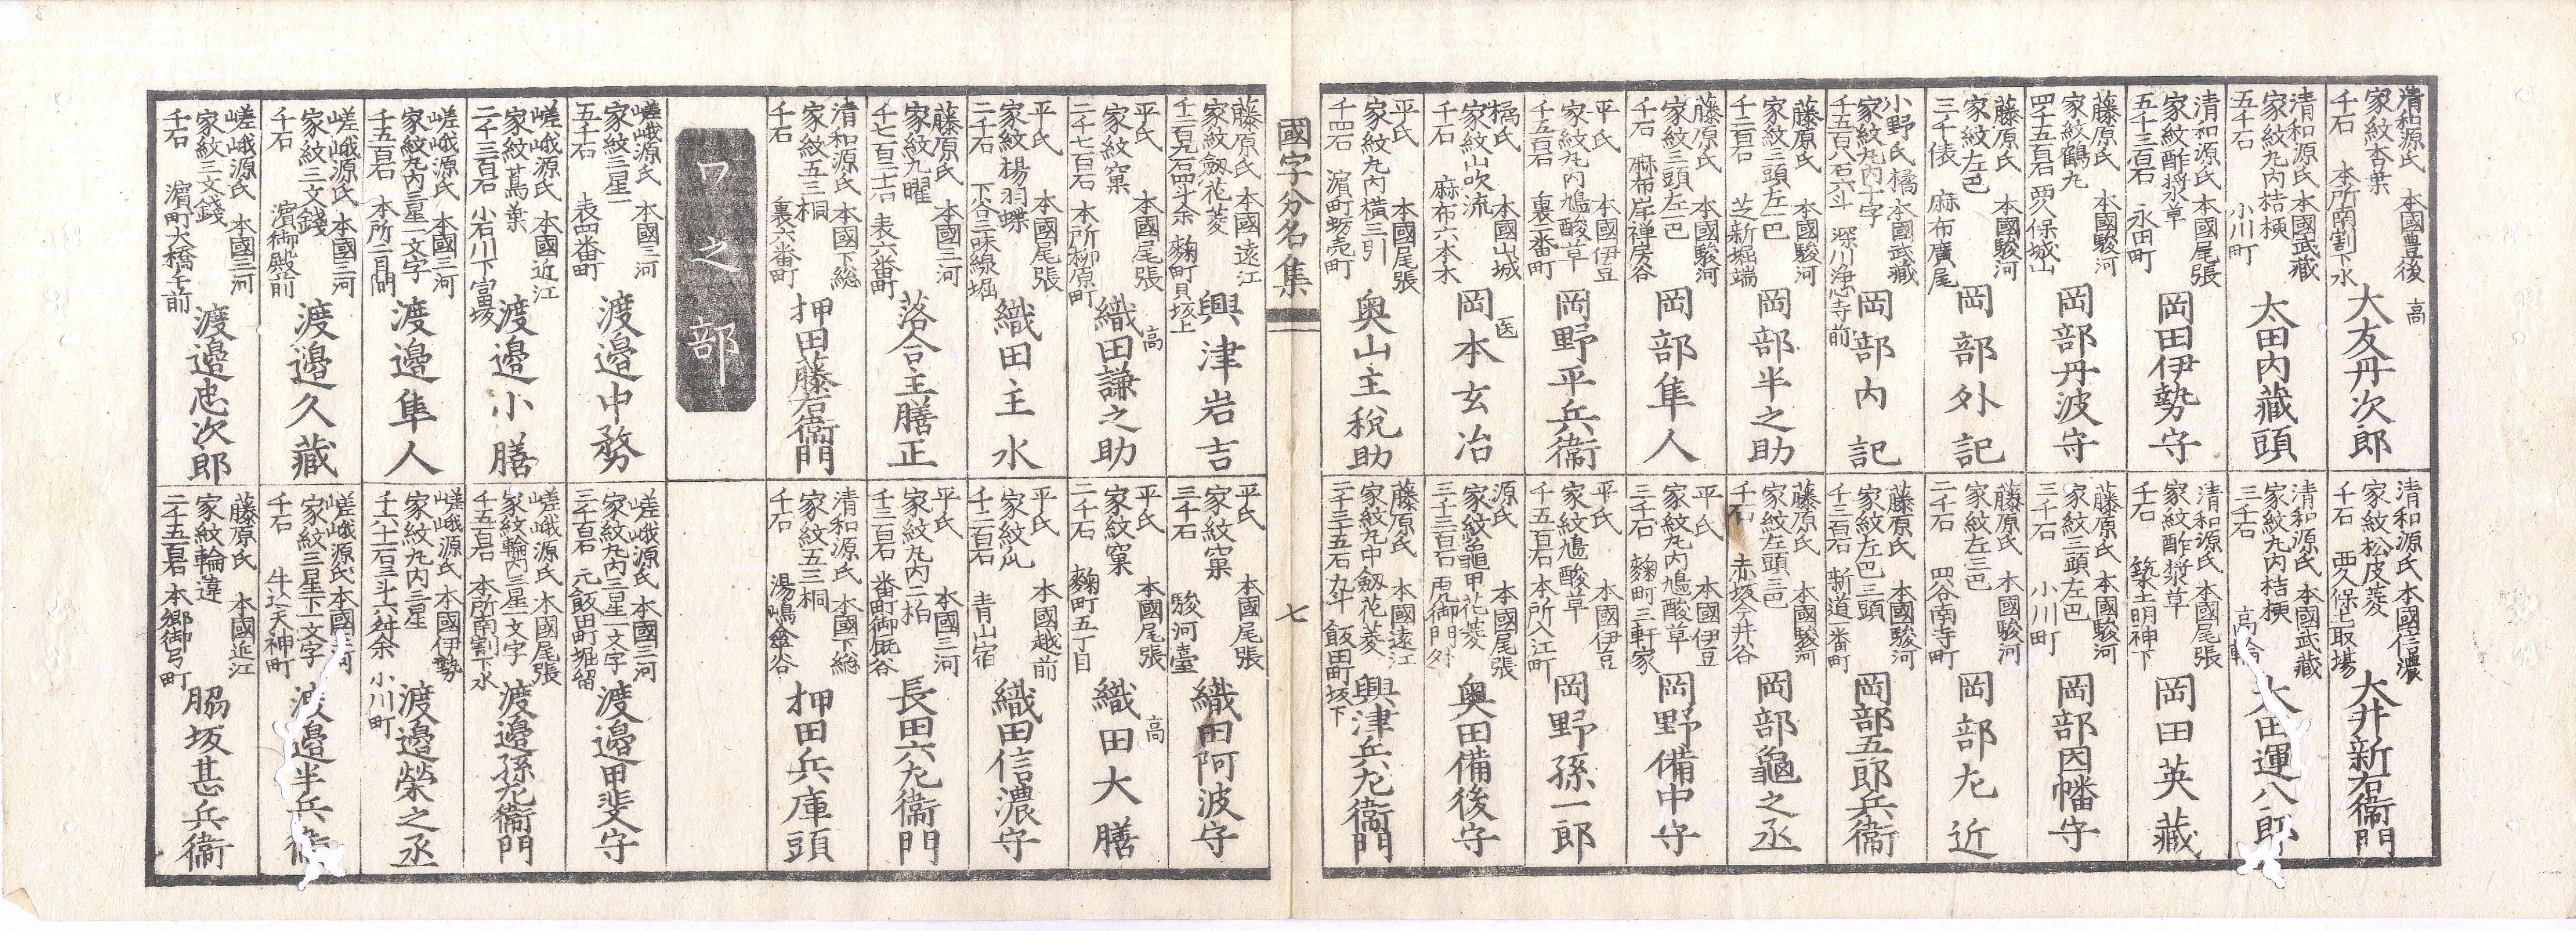 清和源氏 本國豊後
家紋杏葉
千石 本所南割下水
高
大友丹次郎
清和源氏 本國武藏
家紋丸内桔梗
五千石 小川町
太田内藏頭
清和源氏 本國尾張
家紋酢漿草
五千三百石 永田町
岡田伊勢守
藤原氏 本國駿河
家紋鶴丸
四千五百石 大久保城山
岡部丹波守
藤原氏 本國駿河
家紋左巴
三千俵 麻布廣尾
岡部外記
小野氏橘 本國武藏
家紋丸内十字
千五百八石六斗 深川浄心寺前
岡部内記
藤原氏 本國駿河
家紋三頭左巴
千二百石 芝新堀端
岡部半之助
藤原氏 本國駿河
家紋三頭左巴
千石 麻布岸禅房谷
岡部隼人
平氏 本國伊豆
家紋丸内鳩酸草
千五百石 裏二番町
岡野平兵衞
橘氏 本國山城
家紋山吹流
千石 麻布六本木
医
岡本玄冶
平氏 本國尾張
家紋丸内横三引
千四石 濵町蛎売町
奥山主税助
清和源氏 本國信濃
家紋松皮菱
千石 大久保定取場
大井新右衞門
清和源氏 本國武藏
家紋丸内桔梗
三千石 高輪
太田運八郎
清和源氏 本國尾張
家紋酢漿草
千石 築土明神下
岡田英藏
藤原氏 本國駿河
家紋三頭左巴
三千石 小川町
岡部因幡守
藤原氏 本國駿河
家紋左三巴
二千石 四谷南寺町
岡部左近
藤原氏 本國駿河
家紋左巴三頭
千三百石 新道一番町
岡部五郎兵衞
藤原氏 本國駿河
家紋左頭三巴
千石 赤坂今井谷
岡部龜之丞
平氏 本國伊豆
家紋丸内鳩酸草
三千石 麹町三軒家
岡野備中守
平氏 本國伊豆
家紋鳩酸草
千五百石 本所入江町
岡野孫一郎
源氏 本國尾張
家紋龜甲花菱
三千三百石 虎御門外
奥田備後守
藤原氏 本國遠江
家紋丸中劔花菱
二千三十五石九斗 飯田町坂下
興津兵左衞門
國字分名集
七
藤原氏 本國遠江
家紋劔花菱
千二百九石四斗余 麹町貝坂上
興津岩吉
平氏 本國尾張
家紋窠
二千七百石 本所柳原町
高
織田謙之助
平氏 本國尾張
家紋楊羽蝶
二千石 下谷三味線堀
織田主水
藤原氏 本國三河
家紋九曜
千七百二十石 表六番町
落合主膳正
清和源氏 本國下総
家紋五三桐
千石 裏六番町
押田藤右衞門
平氏 本國尾張
家紋窠
三千石 駿河臺
織田阿波守
平氏 本國尾張
家紋窠
二千石 麹町五丁目
高
織田大膳
平氏 本國越前
家紋瓜
千二百石 青山宿
織田信濃守
平氏 本國三河
家紋丸内二柏
千三百石 番町御厩谷
長田六左衞門
清和源氏 本國下総
家紋五三桐
千石 湯嶋傘谷
押田兵庫頭
ワ之部
嵯峨源氏 本國三河
家紋三星一
五千石 表四番町
渡邉中務
嵯峨源氏 本國近江
家紋蔦葉
二千三百石 小石川下富坂
渡邉小膳
嵯峨源氏 本國三河
家紋丸内三星一文字
千五百石 本所二目間
渡邉隼人
嵯峨源氏 本國三河
家紋三文錢
千石 濵御殿前
渡邉久藏
嵯峨源氏 本國三河
家紋三文錢
千石 濵町大橋手前
渡邉忠次郎
嵯峨源氏 本國三河
家紋丸内三星一文字
三千百石 元飯田町堀留
渡邉甲斐守
嵯峨源氏 本國尾張
家紋輪内三星一文字
千五百石 本所南割下水
渡邉孫左衞門
嵯峨源氏 本國伊勢
家紋丸内三星
千六十二石三斗六舛余 小川町
渡邉榮之丞
嵯峨源氏 本國三河
家紋三星下一文字
千石 牛込天神町
渡邉半兵衞
藤原氏 本國近江
家紋輪違
二千五百石 本郷御弓町
脇坂甚兵衞